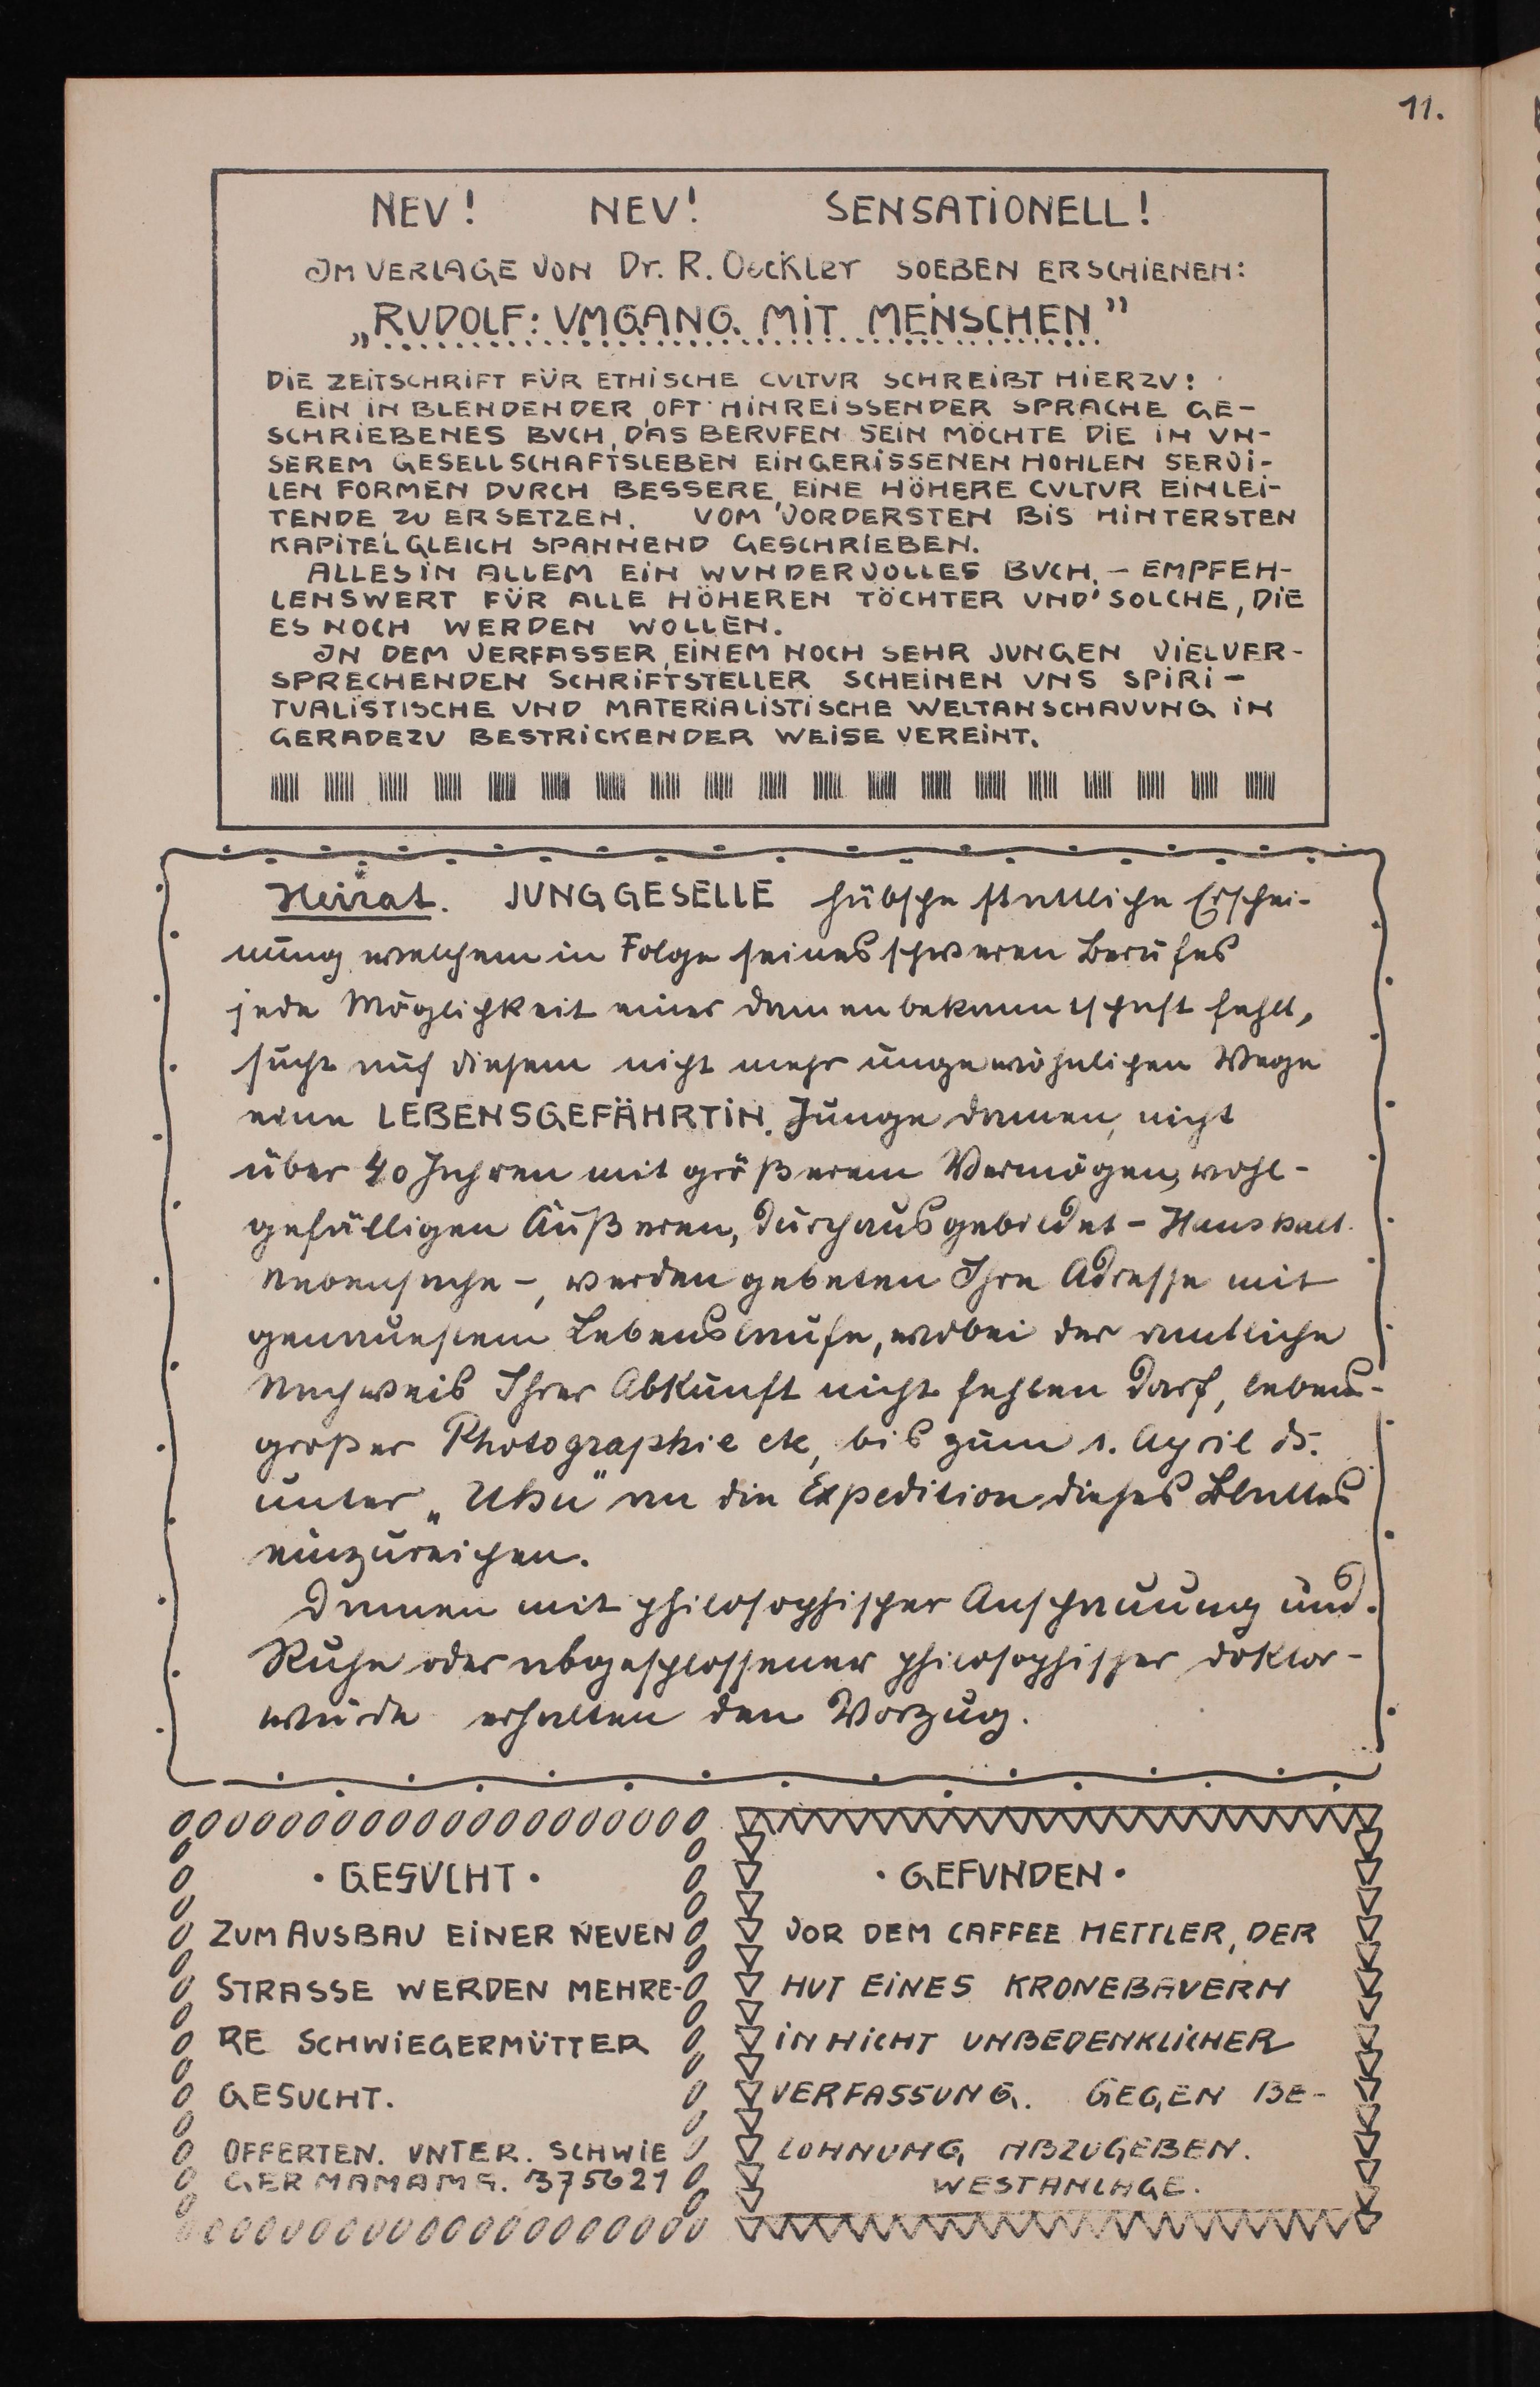 11.
NEV! NEV! SENSATIONELL!
IM VERLAGE VON Dr. R. Oeckler SOEBEN ERSCHIENEN:
„RVDOLF: VMGANG MIT MENSCHEN”
DIE ZEITSCHRIFT FÜR ETHISCHE CVLTVR SCHREIBT HIERZV:
EIN IN BLENDENDER, OFT HINREISSENDER SPRACHE GE-
SCHRIEBENES BVCH, DAS BERVFEN SEIN MÖCHTE DIE IN VN-
SEREM GESELLSCHAFTSLEBEN EINGERISSENEN HOHLEN SERVI-
LEN FORMEN DVRCH BESSERE, EINE HÖHERE CVLTVR EINLEI-
TENDE ZU ERSETZEN. VOM VORDERSTEN BIS HINTERSTEN
KAPITEL GLEICH SPANNEND GESCHRIEBEN.
ALLES IN ALLEM EIN WVNDERVOLLES BVCH. – EMPFEH-
LENSWERT FÜR ALLE HÖHEREN TÖCHTER VND SOLCHE, DIE
ES NOCH WERDEN WOLLEN.
IN DEM VERFASSER, EINEM NOCH SEHR JUNGEN VIELVER-
SPRECHENDEN SCHRIFTSTELLER SCHEINEN VNS SPIRI-
TVALISTISCHE VND MATERIALISTISCHE WELTANSCHAVVNG IN
GERADEZV BESTRICKENDER WEISE VEREINT.
Heirat. JUNGGESELLE hübsche stattliche Erschei-
nung welchem in Folge seines schweren Berufes
jede Möglichkeit einer Damenbekanntschaft fehlt,
sucht auf diesem nicht mehr ungewöhnlichen Wege
eine LEBENSGEFÄHRTIN. Junge Damen, nicht
über 40 Jahren mit größerem Vermögen, wohl-
gefälligen Äußeren, durchaus gebildet – Haushalt
Nebensache –, werden gebeten Ihre Adresse mit
genauestem Lebenslaufe, wobei der amtliche
Nachweis Ihrer Abkunft nicht fehlen darf, lebens-
großer Photographie etc, bis zum 1. April ds.
unter „Uhu" an die Expedition dieses Blattes
einzureichen.
Damen mit philosophischer Anschauung und
Ruhe oder abgeschlossener philosophischer Doktor-
würde erhalten den Vorzug.
· GESVCHT ·
ZUM AVSBAV EINER NEVEN
STRASSE WERDEN MEHRE-
RE SCHWIEGERMÜTTER
GESUCHT.
OFFERTEN. VNTER. SCHWIE
GERMAMAMA. 375621
· GEFVNDEN ·
VOR DEM CAFFEE HETTLER, DER
HUT EINES KRONEBAVERN
IN NICHT UNBEDENKLICHER
VERFASSUNG. GEGEN BE-
LOHNUNG ABZUGEBEN.
WESTANLAGE.